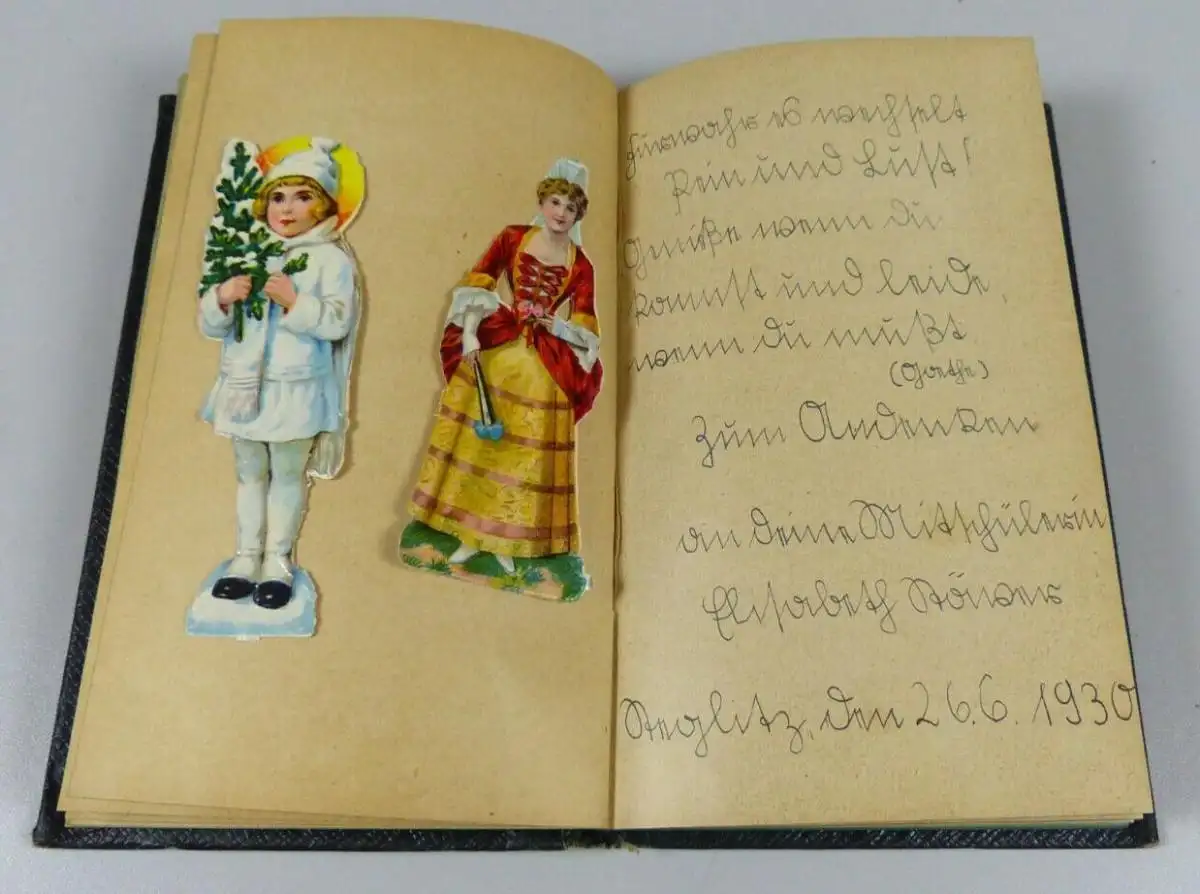 Fürwahr es wechselt
Pein und Lust!
Genieße wenn du
kannst und leide,
wenn du mußt.
(Goethe)
Zum Andenken
an deine Mitschülerin
Elisabeth Röwer
Steglitz, den 26.6. 1930